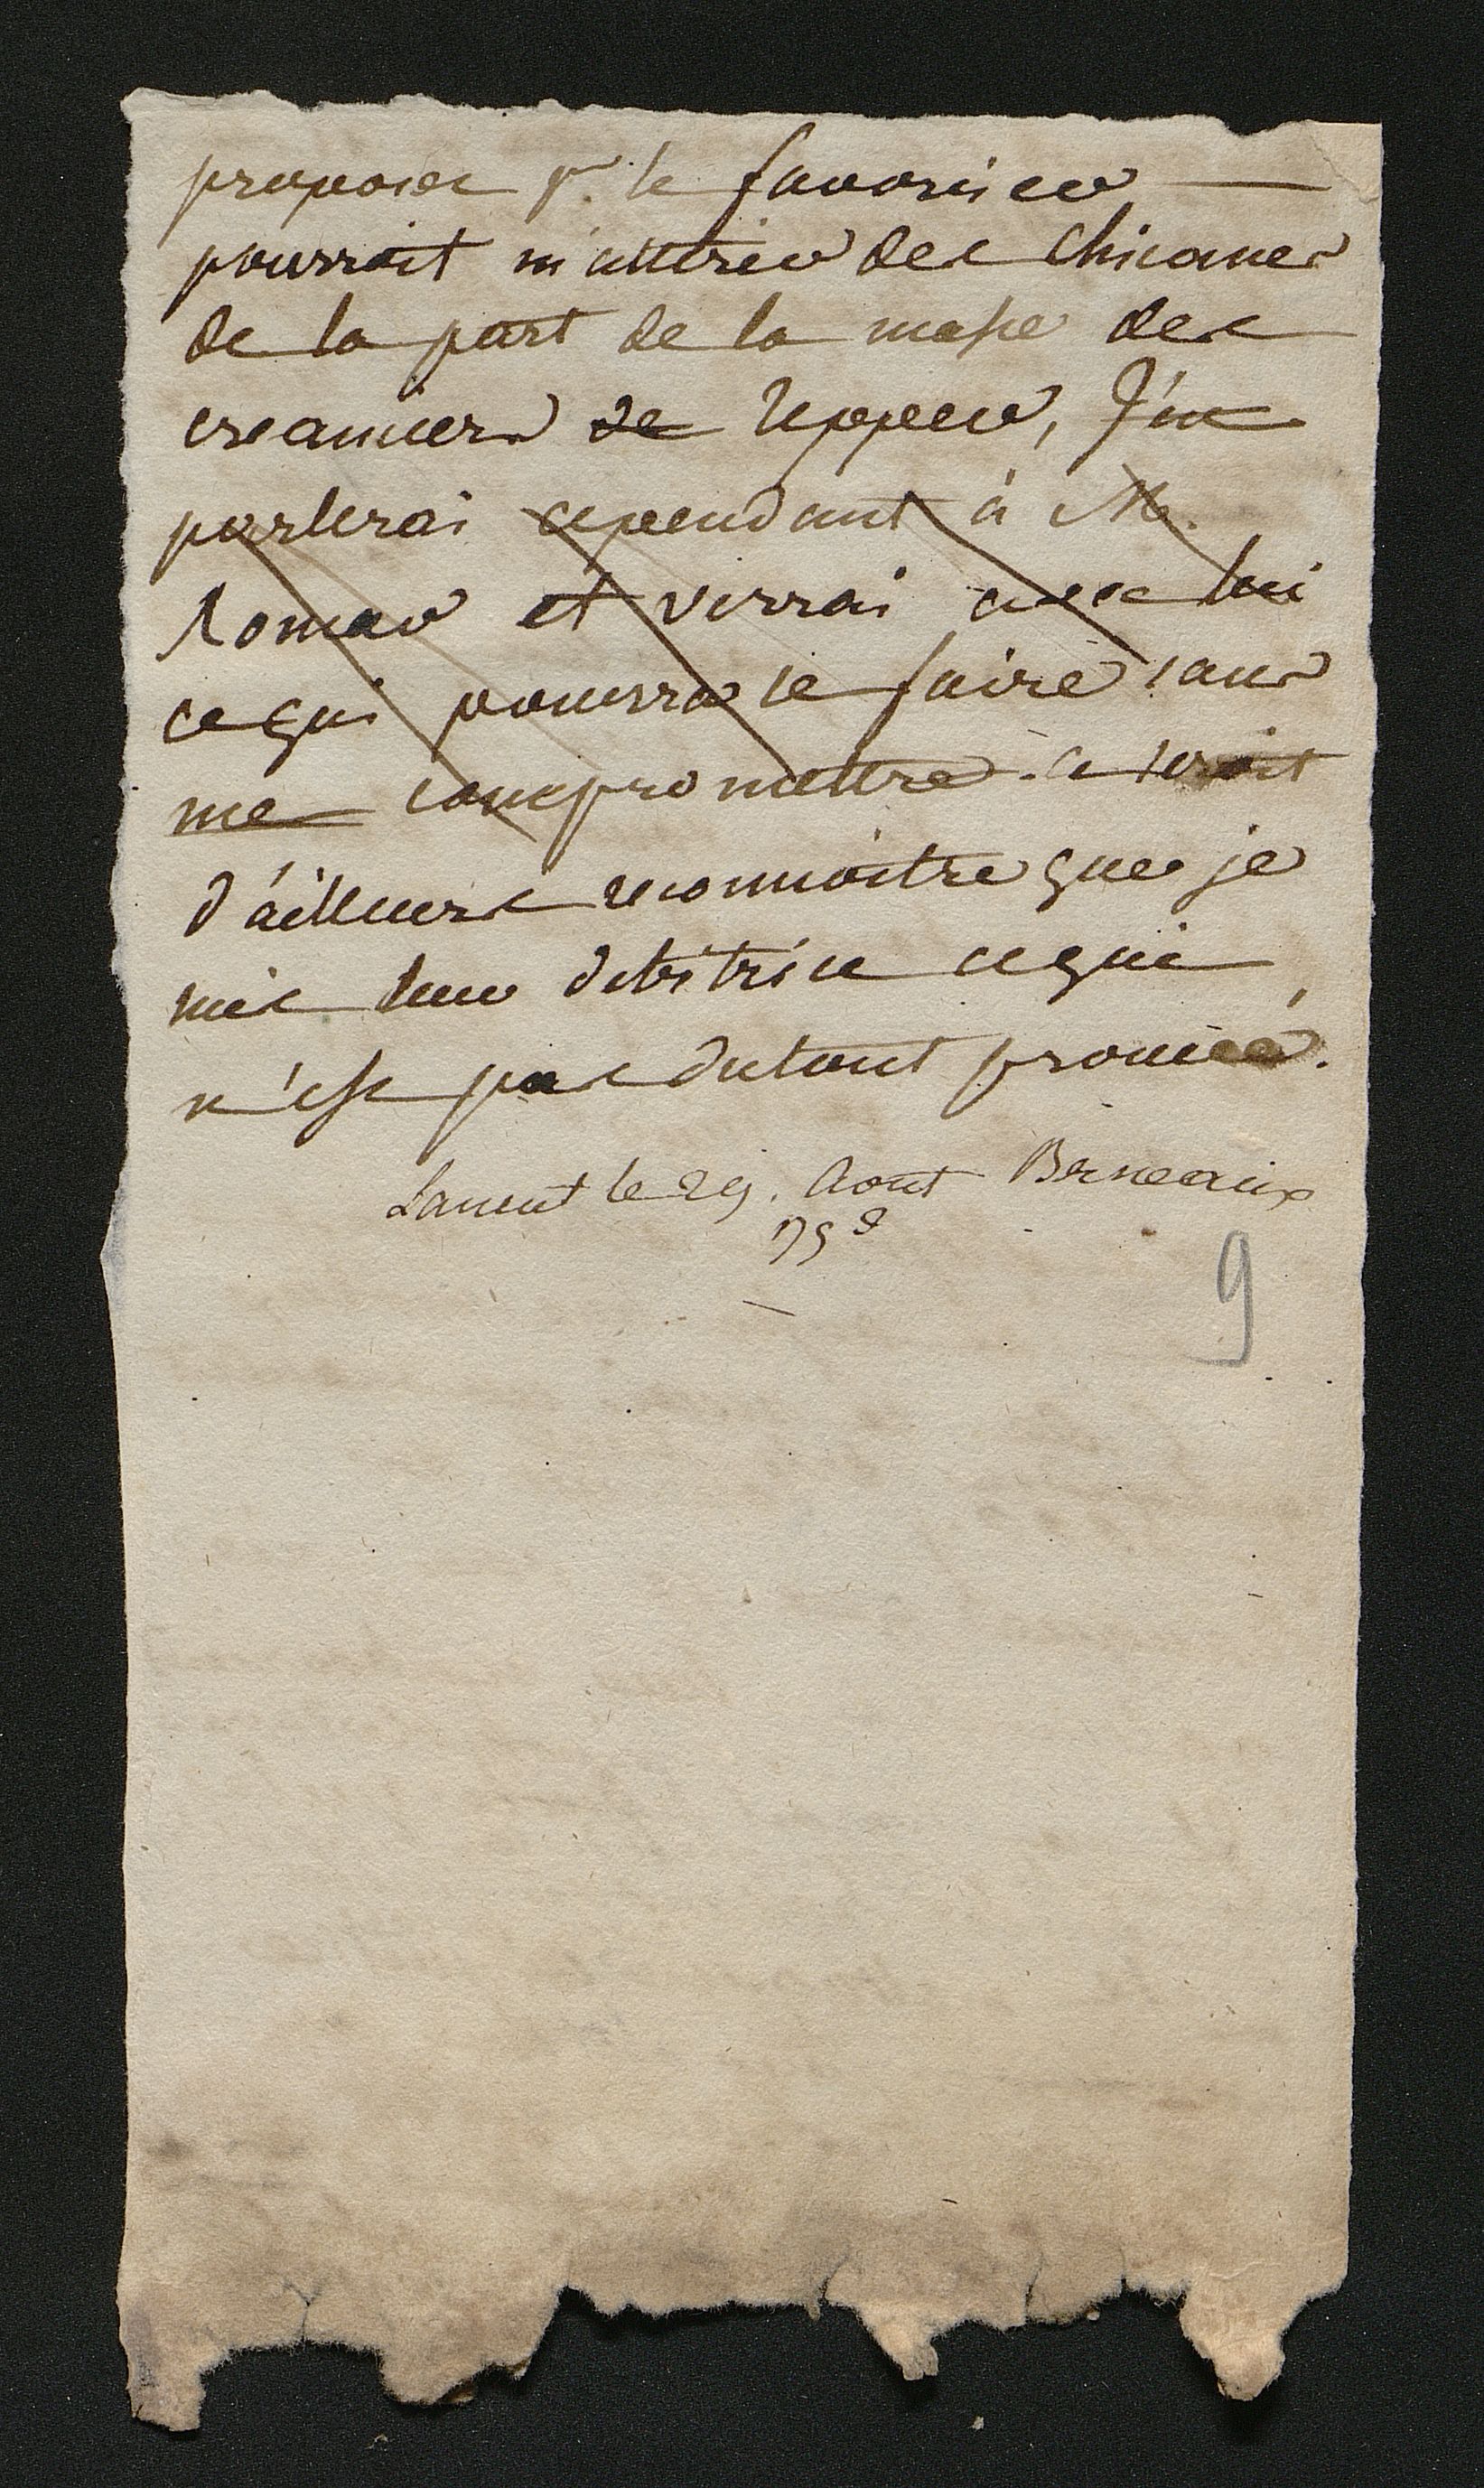 proposés pr. le favoriser
pourroit m'attirer des chicanes
de la part de la masse des
creanciers de Uppeer, J'en
parlerai cependant à M.
Romar et verrai avec lui
ce qui pourra se faire sans
me compromettre. ce seroit
d'ailleurs reconnoitre que je
suis leur debitrice ce qui
n'est pas dutout prouvé.
Laneut le 29. Aout Berneaux
1798
9